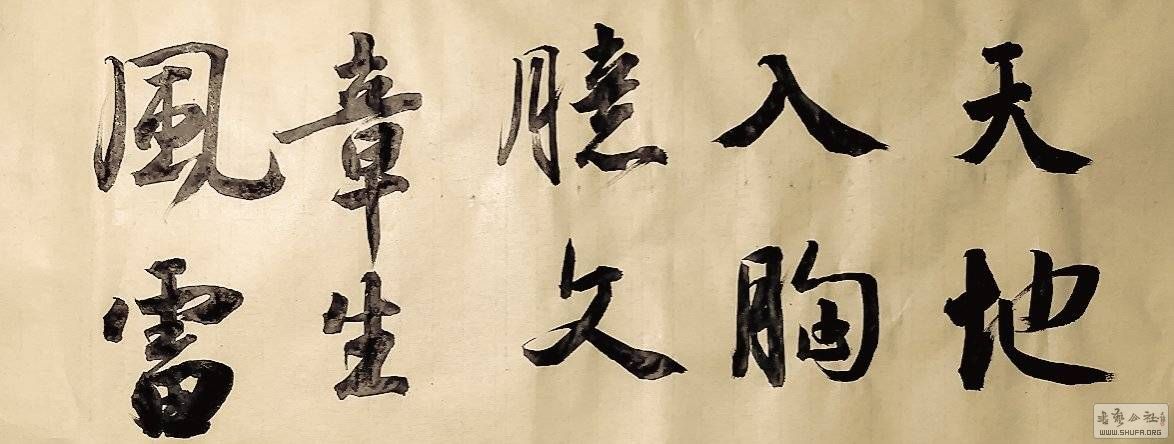 天地
入胸
臆文
章生
風雷
WWW.SHUFA.ORG